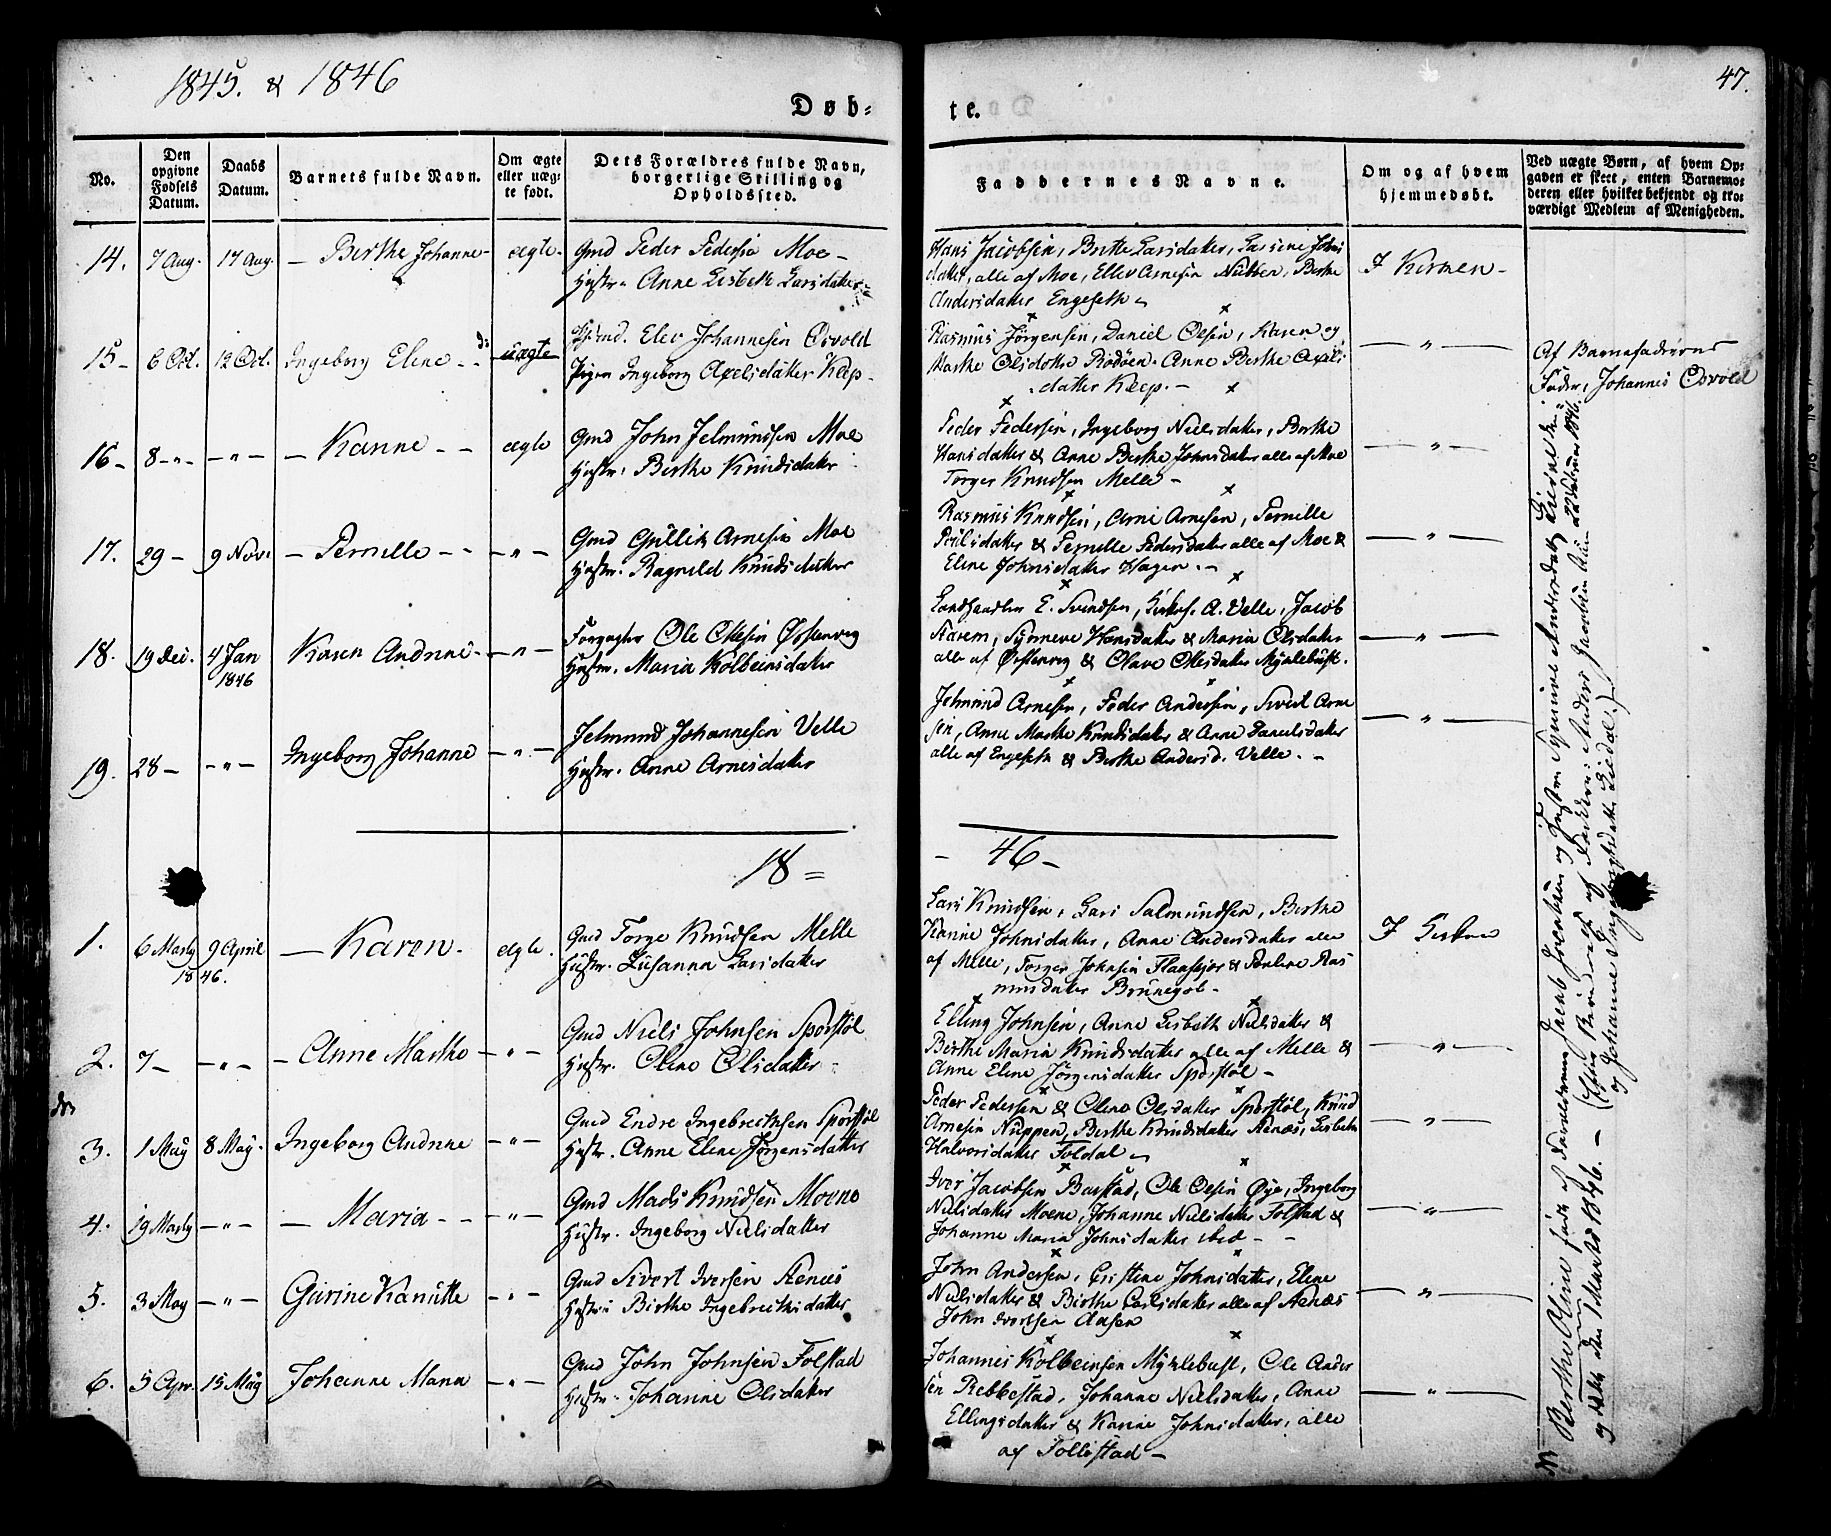 1845. & 1846
47.
Døb=
te.
No.
Den opgivne Fødsels Datum.
Daabs Datum.
Barnets fulde Navn.
Om ægte eller uægte født.
Dets Forældres fulde Navn, borgerlige Stilling og Opholdssted.
Faddernes Navne.
Om og af hvem hjemmedøbt.
Ved uægte Børn, af hvem Opgaven er skeet, enten Barnemoderen eller hvilket bekjendt og troværdigt Medlem af Menigheden.
14. 7 Aug. 17 Aug. — Berthe Johanne — ægte. Gmd Peder Pedersen Moe —
Hustr. Anne Lisbeth Larsdatter
Hans Jacobsen, Birthe Larsdatter, Gurine Johns
datter, alle af Moe, Ellev Arnesen Nubben, Berthe
Andersdatter Engeseth
I Kirken —
15 — 6 Oct. 12 Oct. Ingeborg Eline — uægte Elev Johannesen Osvold
Pigen Ingeborg Axelsdatter Keep —
Rasmus Jørgensen, Daniel Olsen, Karen og
Marthe Olsdatter Rødøen. Anne Berthe Axels
datter Keep. —
— " —
Af Barnefaderens
Fader, Johannes Osvold
16 — 8 — " — — " — — Kanne — — ægte Gmd John Jelmundsen Moe
Hustr. Birthe Knudsdatter
Peder Pedersen, Ingeborg Nielsdatter, Berthe
Hansdatter & Anne Berthe Johnsdatter alle af Moe
Torger Knudsen Melle —
— " —
17. 29 — 9 Nov. — Pernille — — " — Gmd Gullik Arnesen Moe
Hustr. Ragnild Knudsdatter
Rasmus Knudsen, Arne Arnesen, Pernille
Poulsdatter & Pernille Pedersdatter alle af Moe &
Eline Johnsdatter Hagen. —
— " —
18. 19 Dec. 4 Jan 1846 Karen Andrine — " — Forpagter Ole Olsen Ørstenvig
Hustr. Maria Kolbeinsdatter
Landhandler E. Svendsen, A. Velle, Jacob
Aarem, Synneve Hansdatter & Maria Olsdatter
alle af Ørstenvig & Olave Olsdatter Myklebust.
— " —
19. 28 — — " — Ingeborg Johanne — " — Jelmund Johannesen Velle
Hustr. Anne Arnesdatter
Jelmund Arnesen, Peder Andersen, Sivert Arne
sen, Anne Marthe Knudsdatter & Anne Danielsdatter
alle af Engeseth & Berthe Andersd. Velle. —
— " —
18 =
— 46 —
1. 6 Marts 9 April — Karen — ægte. Gmd Torge Knudsen Melle
1846.
Hustr. Susanna Larsdatter
Lars Knudsen, Lars Salmundsen, Berthe
Kanne Johnsdatter, Anne Andersdatter alle
af Melle, Torger Johnsen Flaaskjer & Pauline Ras
musdatter Brunegot —
I Kirken
2. 7 — — " — — Anne Marthe — " — Gmd Niels Johnsen Sporstøl
Hustr. Oline Olsdatter
Elling Johnsen, Anne Lisbeth Nielsdatter &
Birthe Maria Knudsdatter alle af Melle &
Anne Eline Jørgensdatter Sporstøl —
— " —
3. 1 May 8 May. Ingeborg Andrine — " — Gmd Endre Ingebrectsen Sporstøl
Hustr. Anne Elene Jørgensdatter
Peder Pedersen & Oline Olsdatter Sporstøl, Knud
Arnesen Nuppen, Birthe Knudsdatter Aenæs, Lisbeth
Halvorsdatter Foldal
— " —
4. 19 Marts — " — — Maria — — — " — Gmd Mads Knudsen Movne
Hustr. Ingeborg Nielsdatter
Iver Jacobsen Barstad, Ole Olsen Øye, Ingeborg
Nielsdatter Movne, Johanne Nielsdatter Folstad &
Johanne Maria Johnsdatter ibid — —
— " —
5. 3 May — " — Gurine Kanutte — " — Gmd Sivert Iversen Aenæs
Hustru Birthe Ingebrectsdatter
John Andersen, Cristine Johnsdatter, Elene
Nielsdatter & Birthe Carlsdatter alle af Aenæs
John Ivertsen Aasen
— " —
6. 5 Apr. 15 May Johanne Maria — " — Gmd John Johnsen Folstad
Hustr. Johanne Olsdatter
Johannes Kolbeinsen Myklebust, Ole Ander
sen Rebbestad, Johanne Nielsdatter, Anne
Ellingsdatter & Kanne Johnsdatter, alle
af Follestad —
— " —
Berthe Oline født af Forældrene Jacob Jacobsen og Hustru Synneve Andersdatter Liedal den 22 Februar 1846.
og døbt den 1 Marts 1846. —